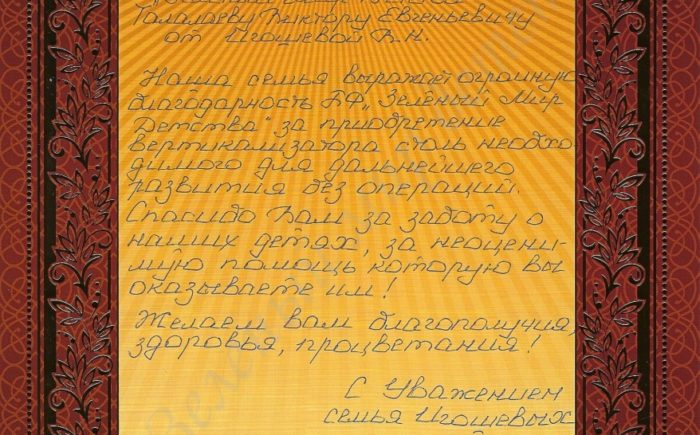 Талалаеву Виктору Евгеньевичу
от Игошевой В.Н.
Наша семья выражает огромную
благодарность БФ „Зелёный Мир
Детства" за приобретение
вертикализатора столь необхо-
димого для дальнейшего
развития без операций.
Спасибо Вам за заботу о
наших детях, за неоцени-
мую помощь которую вы
оказываете им!
Желаем вам благополучия,
здоровья, процветания!
С Уважением
семья Игошевых